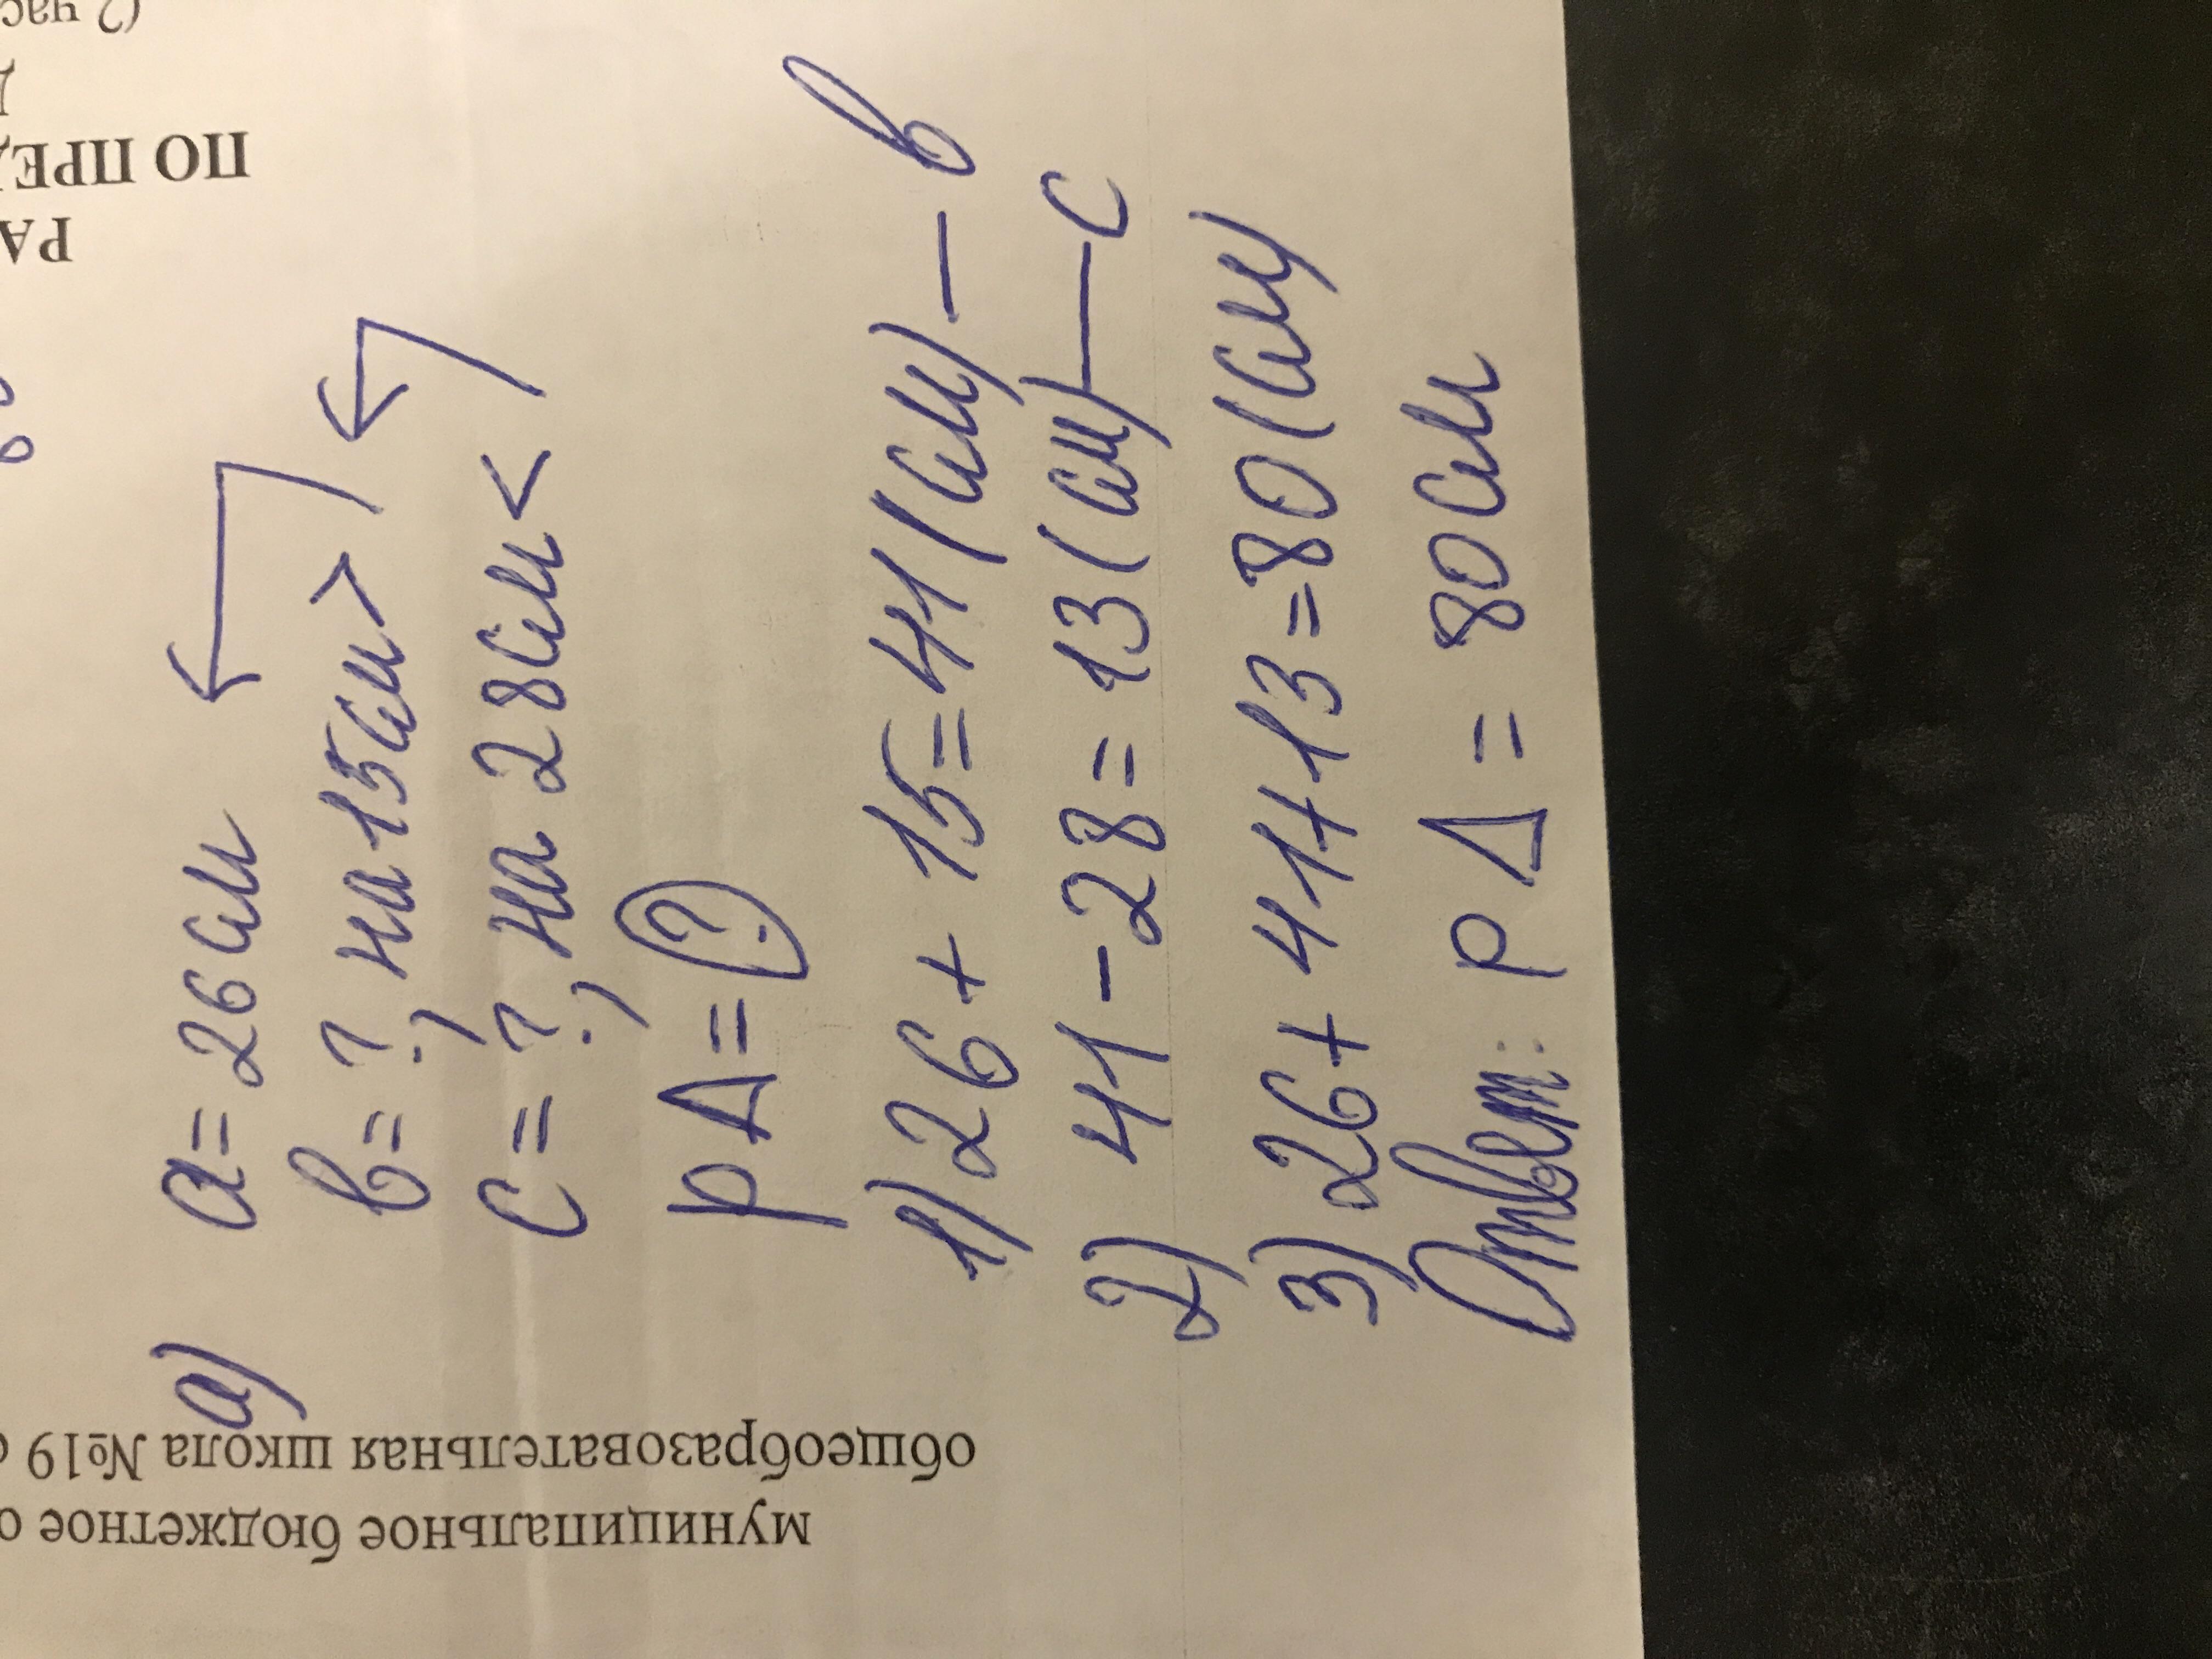 а) a = 26 см
в = ?, на 15 см >
c = ?, на 28 см <
P Δ = ?
1) 26 + 15 = 41 (см) — в
2) 41 - 28 = 13 (см) — c
3) 26 + 41 + 13 = 80 (см)
Ответ: P Δ = 80 см
муниципальное бюджетное о
общеобразовательная школа №19
РА
ПО ПРЕД
Д
(2 час